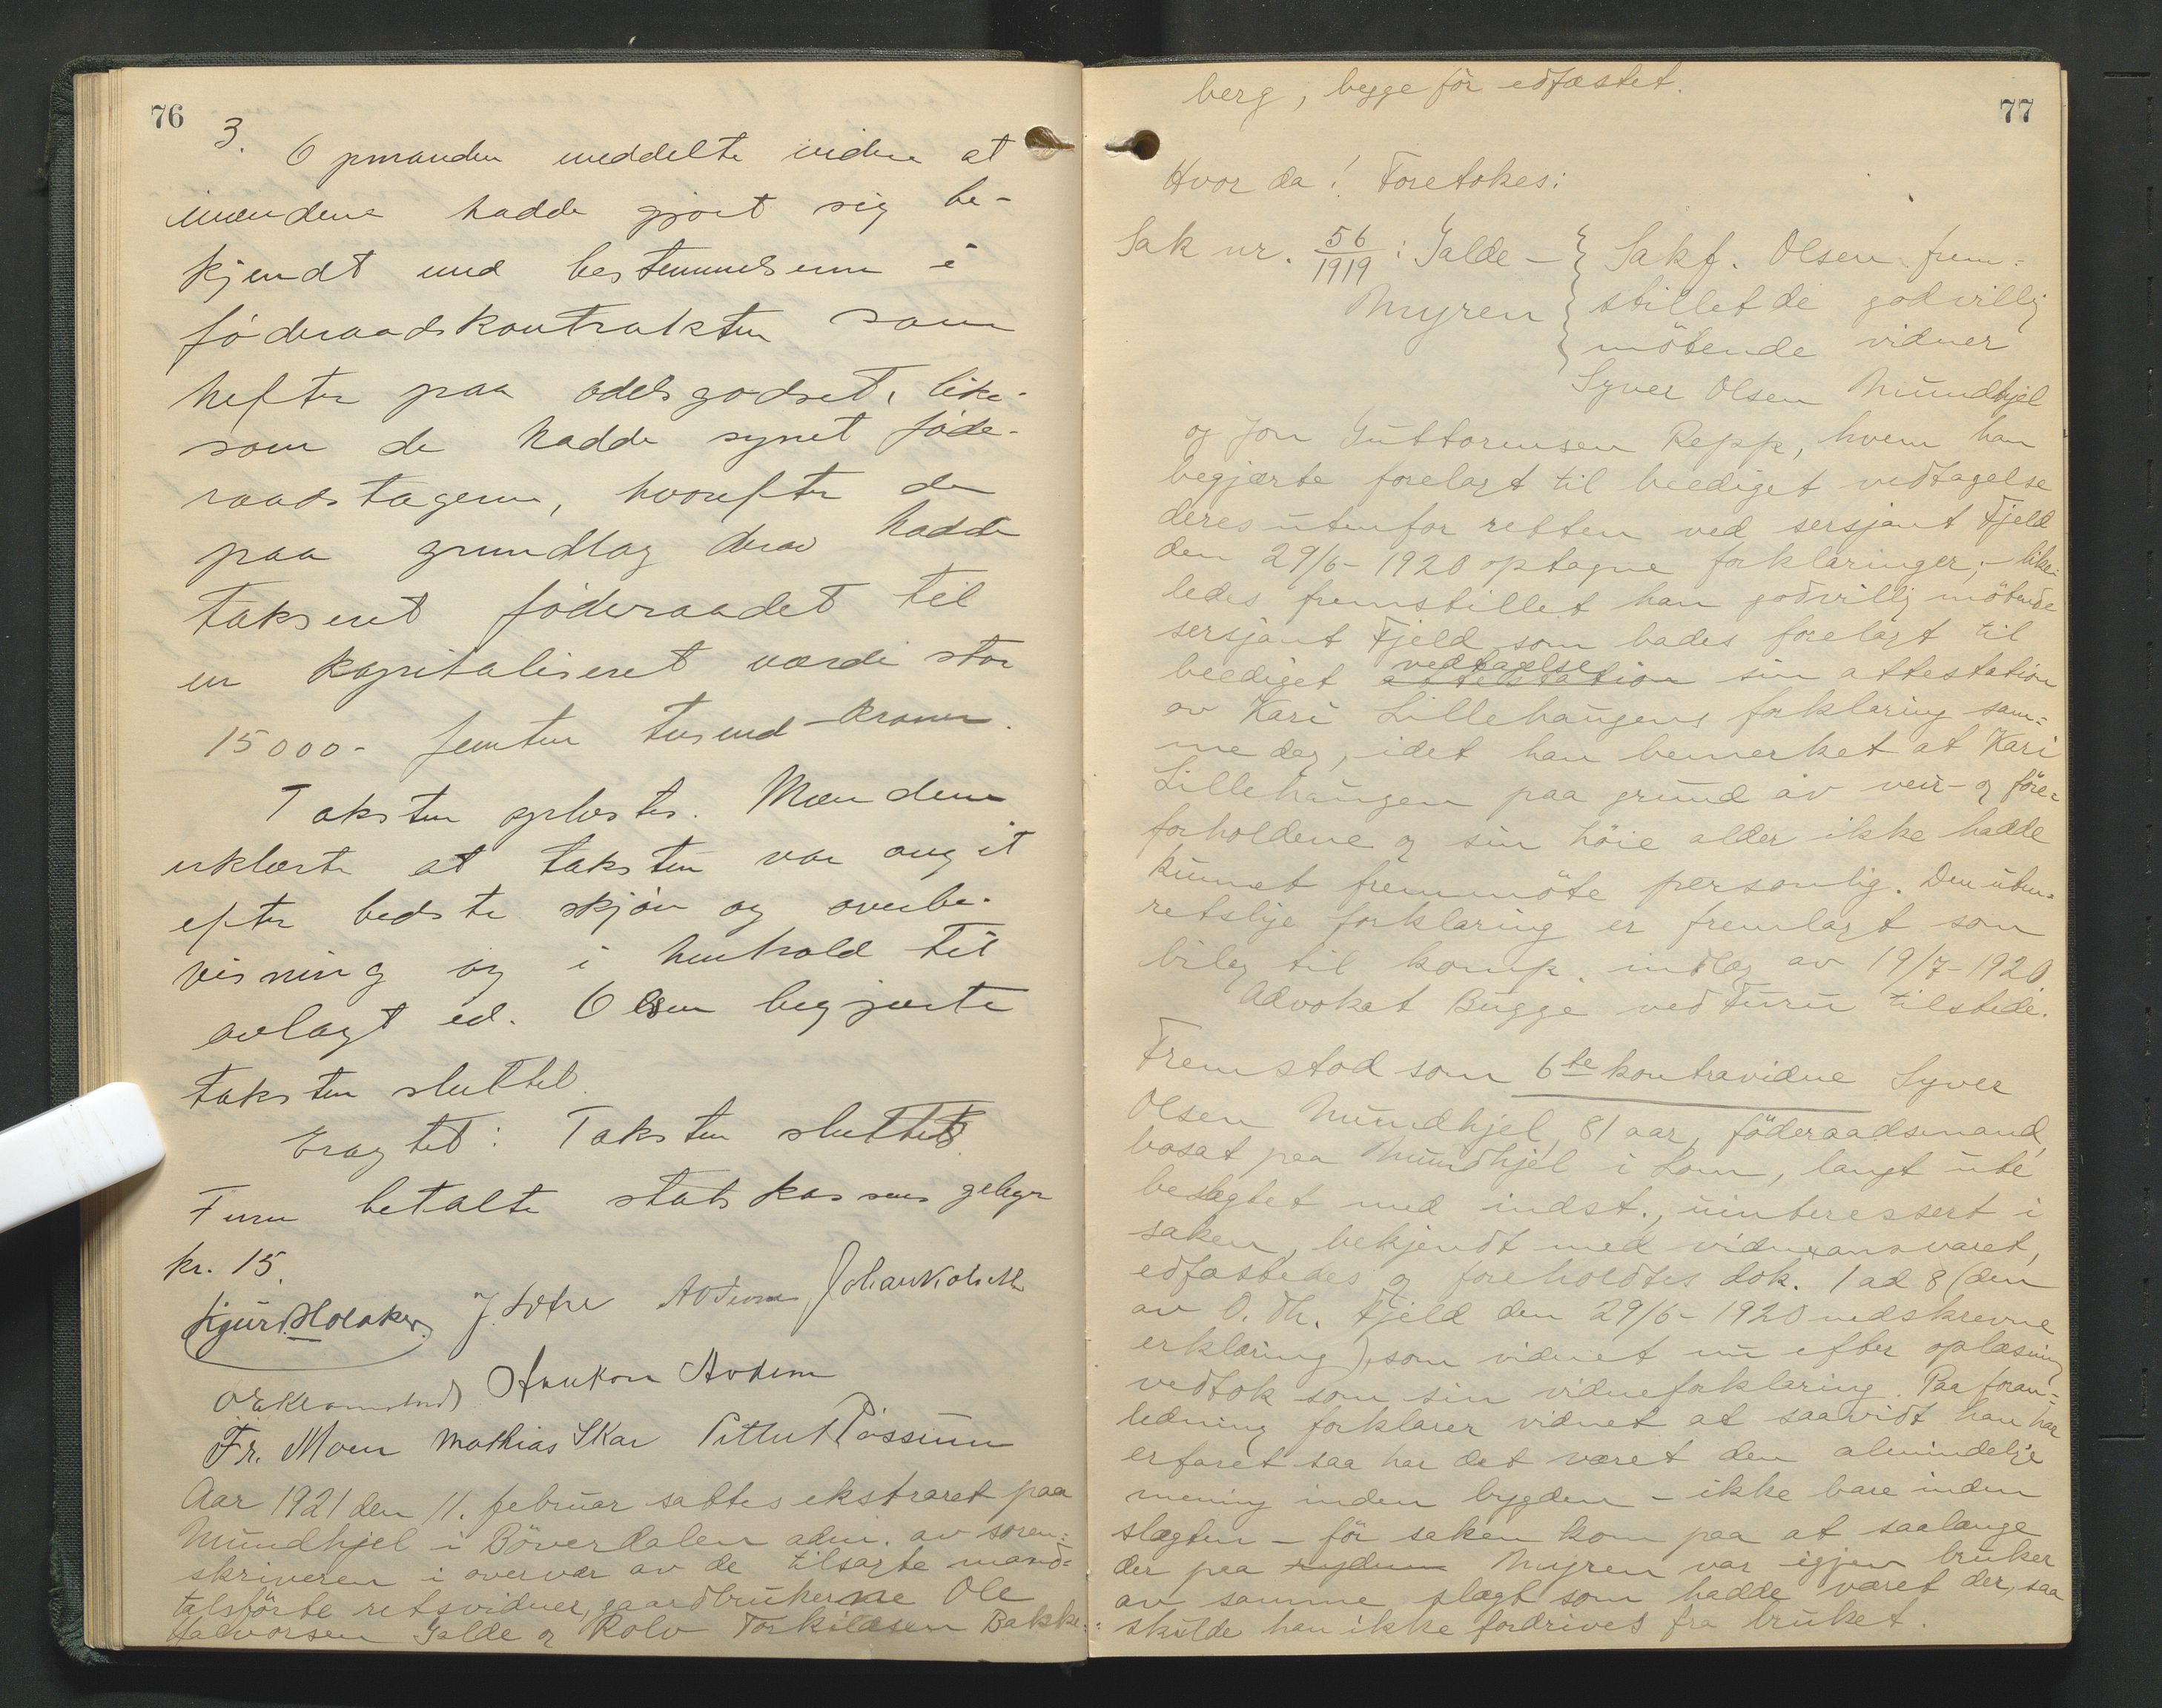 76
3. Opmanden meddelte videre at
mændene hadde gjort sig be-
kjendt med bestemmelsene i
föderaadskontrakten som
hefter paa odelsgodset, like-
som de hadde synet föde-
raadstageren, hvorefter de
paa grundlag derav hadde
taksert föderaadet til
en kapitaliseret værdi stor
15000- femten tusend kroner.
Taksten oplæstes. Mændene
erklærte at taksten var avgit
efter bedste skjön og overbe-
visning og i henhold til
avlagt ed. Olsen begjærte
taksten sluttet.
Eragtet: Taksten sluttet.
Furu betalte statskassens gebyr
kr. 15.
Sjurd Holaker J. Sotre A Odium Johan Kolseth
O E Kramstad Haakon Aodem
Fr. Moen Mathias Skar Pittut Rössum
Aar 1921 den 11. februar sattes ekstraret paa
Mundhjel i Böverdalen adm. av soren-
skriveren i overvær av de tilsagte mand-
talsförte retsvidner, gaardbrukerne Ole
Halvorsen Galde og Rolv Torkildsen Bakke-
77
berg, begge för edfæstet.
Hvor da! Foretokes:
Sak nr. 56/1919: Galde- Sakf. Olsen frem-
Myren stillet de godvillig
mötende vidner
Syver Olsen Mundhjel
og Jon Guttormsen Repp, hvem han
begjærte forelagt til beediget vedtagelse
deres utenfor retten ved sersjant Fjeld
den 29/6-1920 optagne forklaringer; - like-
ledes fremstillet han godvillig mötende
sersjant Fjeld som bades forelagt til
beediget attestation vedtagelse sin attestation
av Kari Lillehaugens forklaring sam-
me dag, idet han bemerket at Kari
Lillehaugen paa grund av veir- og före-
forholdene og sin höie alder ikke hadde
kunnet fremmöte personlig. Den uten-
retslige forklaring er fremlagt som
bilag til komp. indlæg av 19/7-1920.
Advokat Bugge ved Furu tilstede.
Fremstod som 6te kontravidne Syver
Olsen Mundhjel, 81 aar, föderaadsmand,
bosat paa Mundhjel i Lom, langt ute
beslegtet med indst., uinteressert i
saken, bekjendt med vidneansvaret,
edfæstedes og foreholdtes dok. 1 ad 8 (den
av O. Th. Fjeld den 29/6-1920 nedskrevne
erklæring), som vidnet nu efter oplæsning
vedtok som sin vidneforklaring. Paa foran-
ledning forklarer vidnet at saavidt han har
erfaret saa har det været den almindelige
mening inden bygden - ikke bare inden
slægten - för saken kom paa at saalænge
der paa Myren var igjen bruker
av samme slægt som hadde været der, saa
skulde han ikke fordrives fra bruket.